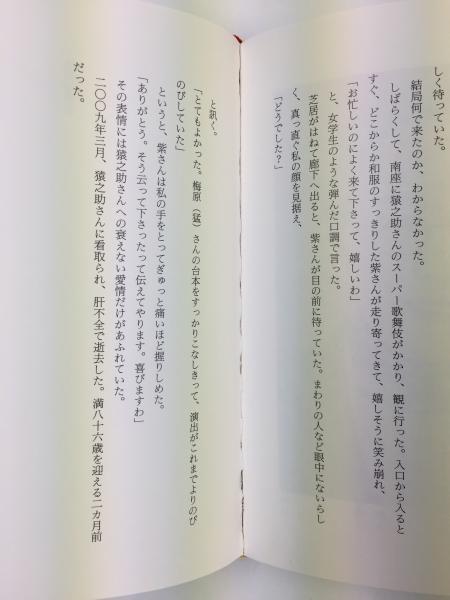 しく待っていた。
結局何で来たのか、わからなかった。
しばらくして、南座に猿之助さんのスーパー歌舞伎がかかり、観に行った。入口から入ると
すぐ、どこからか和服のすっきりした紫さんが走り寄ってきて、嬉しそうに笑み崩れ、
「お忙しいのによく来て下さって、嬉しいわ」
と、女学生のような弾んだ口調で言った。
芝居がはねて廊下へ出ると、紫さんが目の前に待っていた。まわりの人など眼中にないらし
く、真っ直ぐ私の顔を見据え、
「どうでした?」
と訊く。
「とてもよかった。梅原(猛)さんの台本をすっかりこなしきって、演出がこれまでよりのび
のびしていた」
というと、紫さんは私の手をとってぎゅっと痛いほど握りしめた。
「ありがとう。そう云って下さったって伝えてやります。喜びますわ」
その表情には猿之助さんへの衰えない愛情だけがあふれていた。
二〇〇九年三月、猿之助さんに看取られ、肝不全で逝去した。満八十六歳を迎える二カ月前
だった。